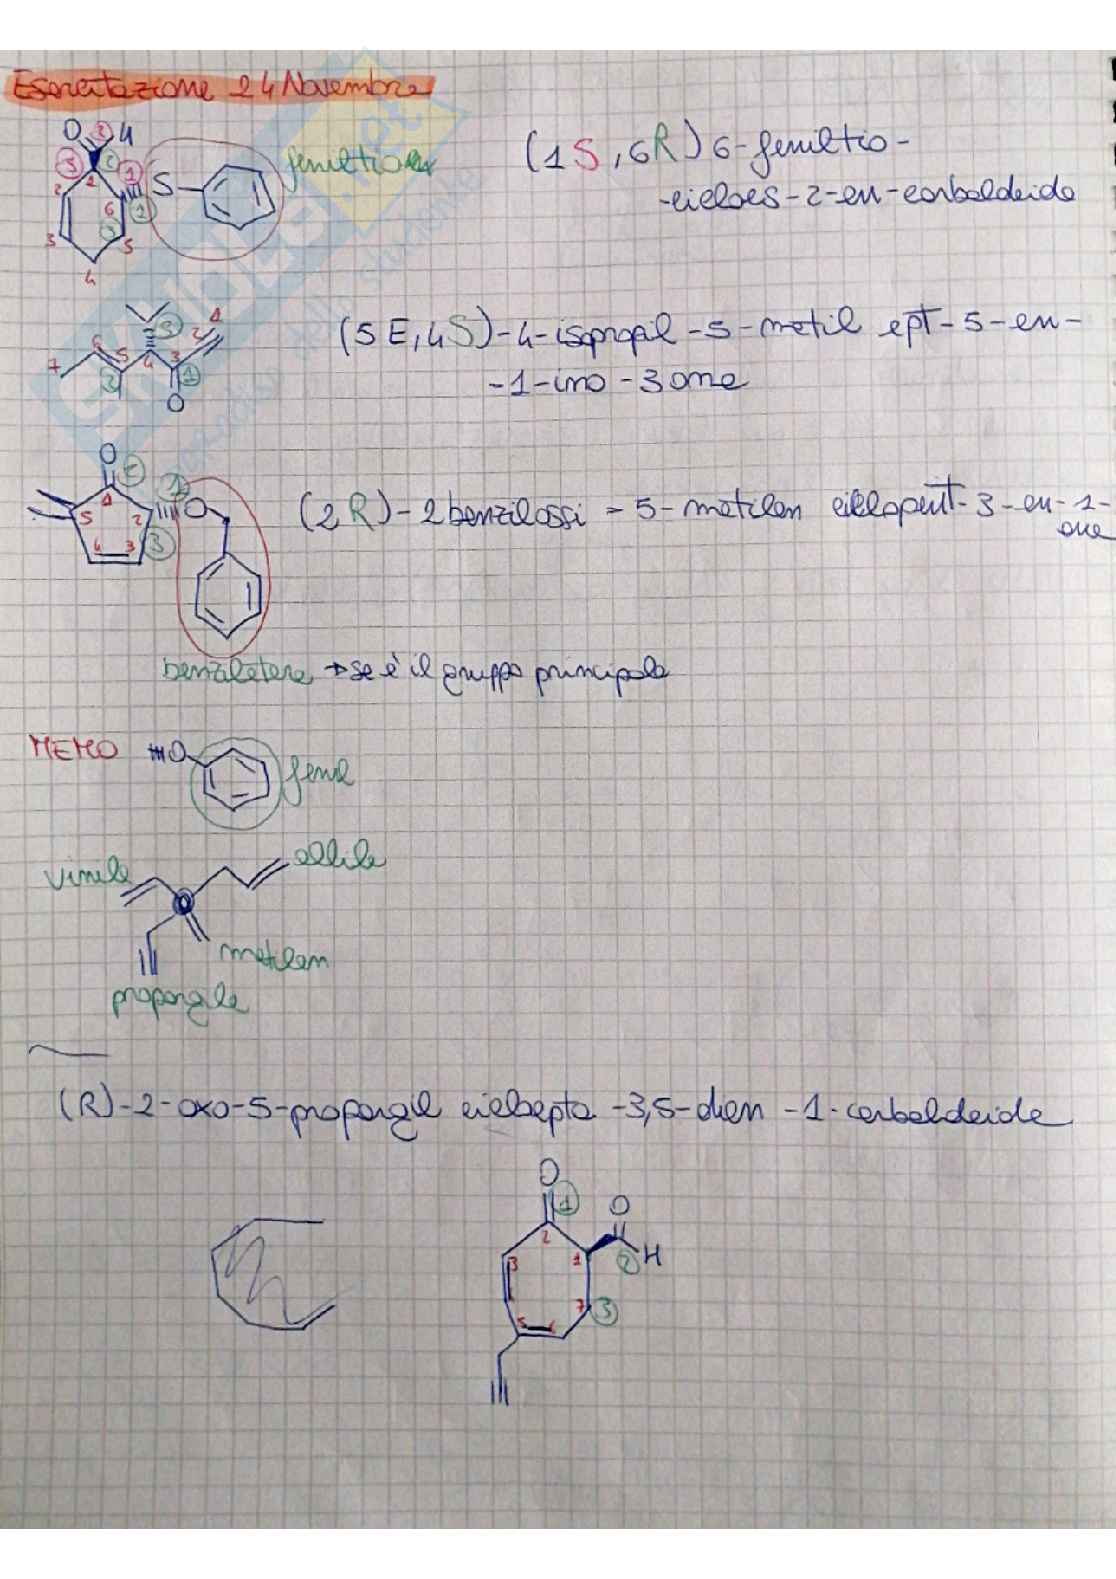 Esercitazione 24 Novembre
(1S, 6R) 6-feniltio-
-cicloes-2-en-carbaldeide
O H
S
feniltio
1 2 3 4 5 6
(5E, 4S)-4-isopropil-5-metil ept-5-en-
-1-ino-3one
1 2 3 4 5 6 7
O
O
O
1 2 3 4 5
(2R)-2benzilossi-5-metilen ciclopent-3-en-1-
one
benziletere → se è il gruppo principale
MEMO
O
fenil
vinile
allile
metilen
propargile
(R)-2-oxo-5-propargil cicloepta-3,5-dien-1-carbaldeide
O
1
O
2
1
H
3
2
7
3
5
6